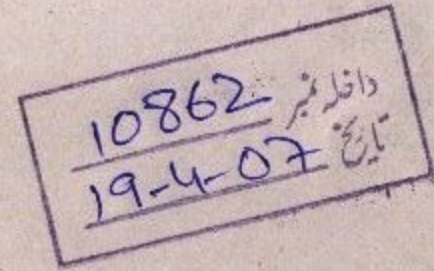 داخلہ نمبر 10862
تاریخ 19-4-07